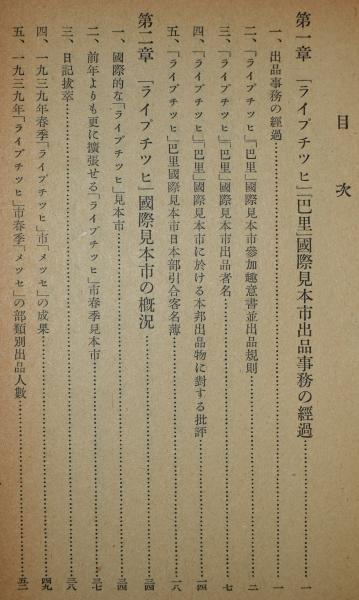 目次
第一章 「ライプチツヒ」「巴里」國際見本市出品事務の經過…………一
一、出品事務の經過…………一
二、「ライプチツヒ」「巴里」國際見本市參加趣意書並出品規則…………二
三、「ライプチツヒ」「巴里」國際見本市出品者名…………七
四、「ライプチツヒ」「巴里」國際見本市に於ける本邦出品物に對する批評…………一四
五、「ライプチツヒ」巴里國際見本市日本部引合客名簿…………一八
第二章 「ライプチツヒ」國際見本市の概況…………三四
一、國際的な「ライプチツヒ」見本市…………三四
二、前年よりも更に擴張せる「ライプチツヒ」市春季見本市…………三七
三、日記拔萃…………三八
四、一九三九年春季「ライプチツヒ」市「メツセ」の成果…………四九
五、一九三九年「ライプチツヒ」市春季「メツセ」の部類別出品人數…………五二